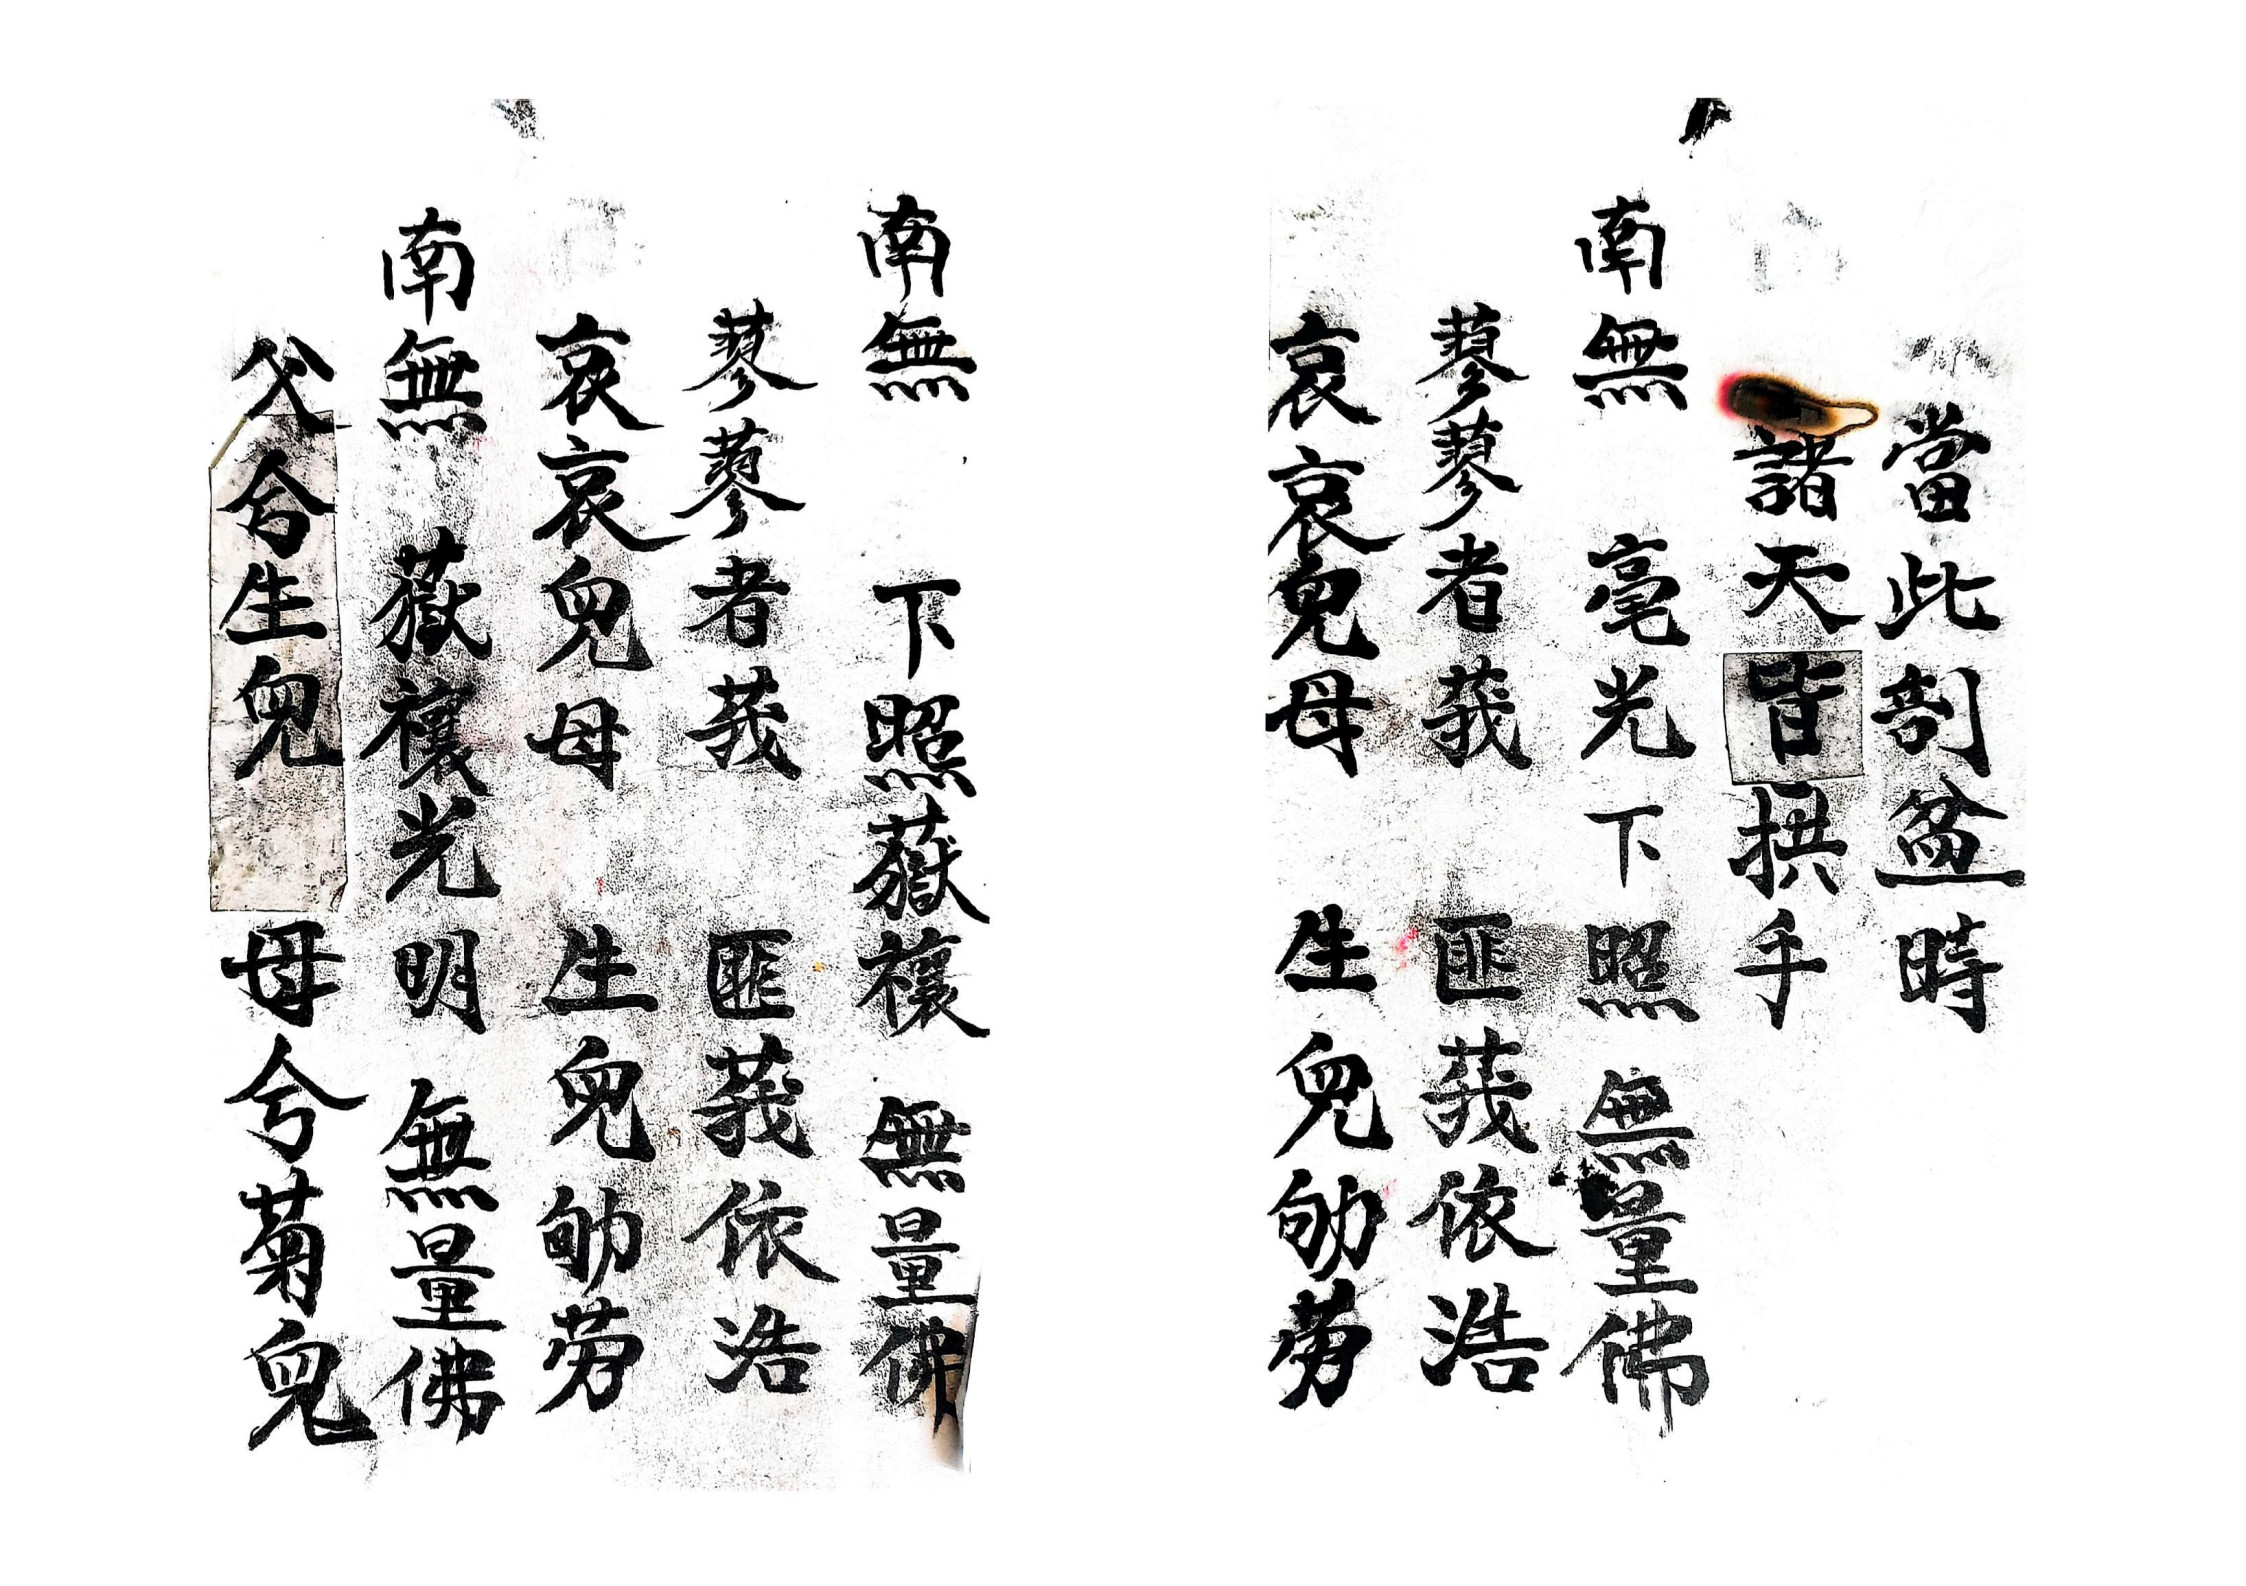 當此剖盆時
諸天皆拱手
南無 亳光下照 無量佛
蓼蓼者莪 匪莪依浩
哀哀皃母 生皃劬劳
南無 下照嶽禳 無量佛
蓼蓼者莪 匪莪依浩
哀哀皃母 生皃劬劳
南無 嶽禳光明 無量佛
父兮生皃 母兮菊皃